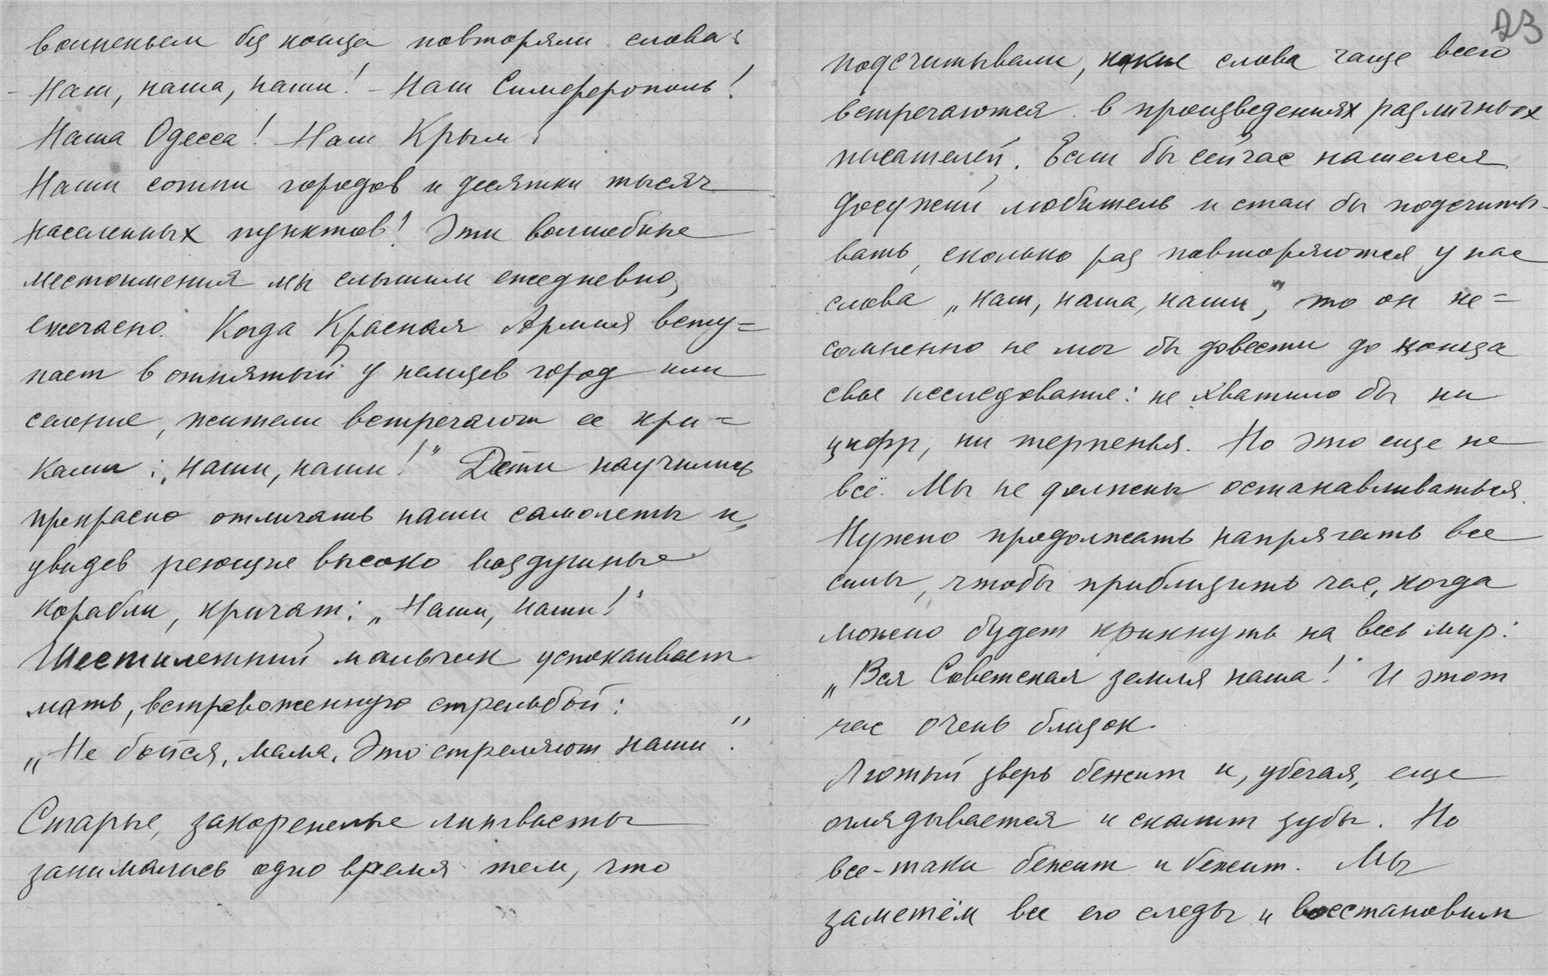 волненьем без конца повторяли слова:
- Наш, наша, наши! - Наш Симферополь!
Наша Одесса! Наш Крым!
Наши сотни городов и десятки тысяч
населенных пунктов! Эти волшебные
местоимения мы слышим ежедневно,
ежечасно. Когда Красная Армия всту=
пает в отнятый у немцев город или
селение, жители встречают ее кри=
ками: „Наши, наши!" Дети научились
прекрасно отличать наши самолеты и,
увидев реющие высоко воздушные
корабли, кричат: „Наши, наши!"
Шестилетний мальчик успокаивает
мать, встревоженную стрельбой:
„Не бойся, мама. Это стреляют наши".
Старые, закоренелые лингвисты
занимались одно время тем, что
23
подсчитывали, какие слова чаще всего
встречаются в произведениях различных
писателей. Если бы сейчас нашелся
досужий любитель и стал бы подсчиты-
вать, сколько раз повторяются у нас
слова „наш, наша, наши", то он не=
сомненно не мог бы довести до конца
свое исследование: не хватило бы ни
цифр, ни терпенья. Но это еще не
всё. Мы не должны останавливаться.
Нужно продолжать напрягать все
силы, чтобы приблизить час, когда
можно будет крикнуть на весь мир:
„Вся Советская земля наша!" И этот
час очень близок.
Лютый зверь бежит и, убегая, еще
оглядывается и скалит зубы. Но
все-таки бежит и бежит. Мы
заметём все его следы и восстановим